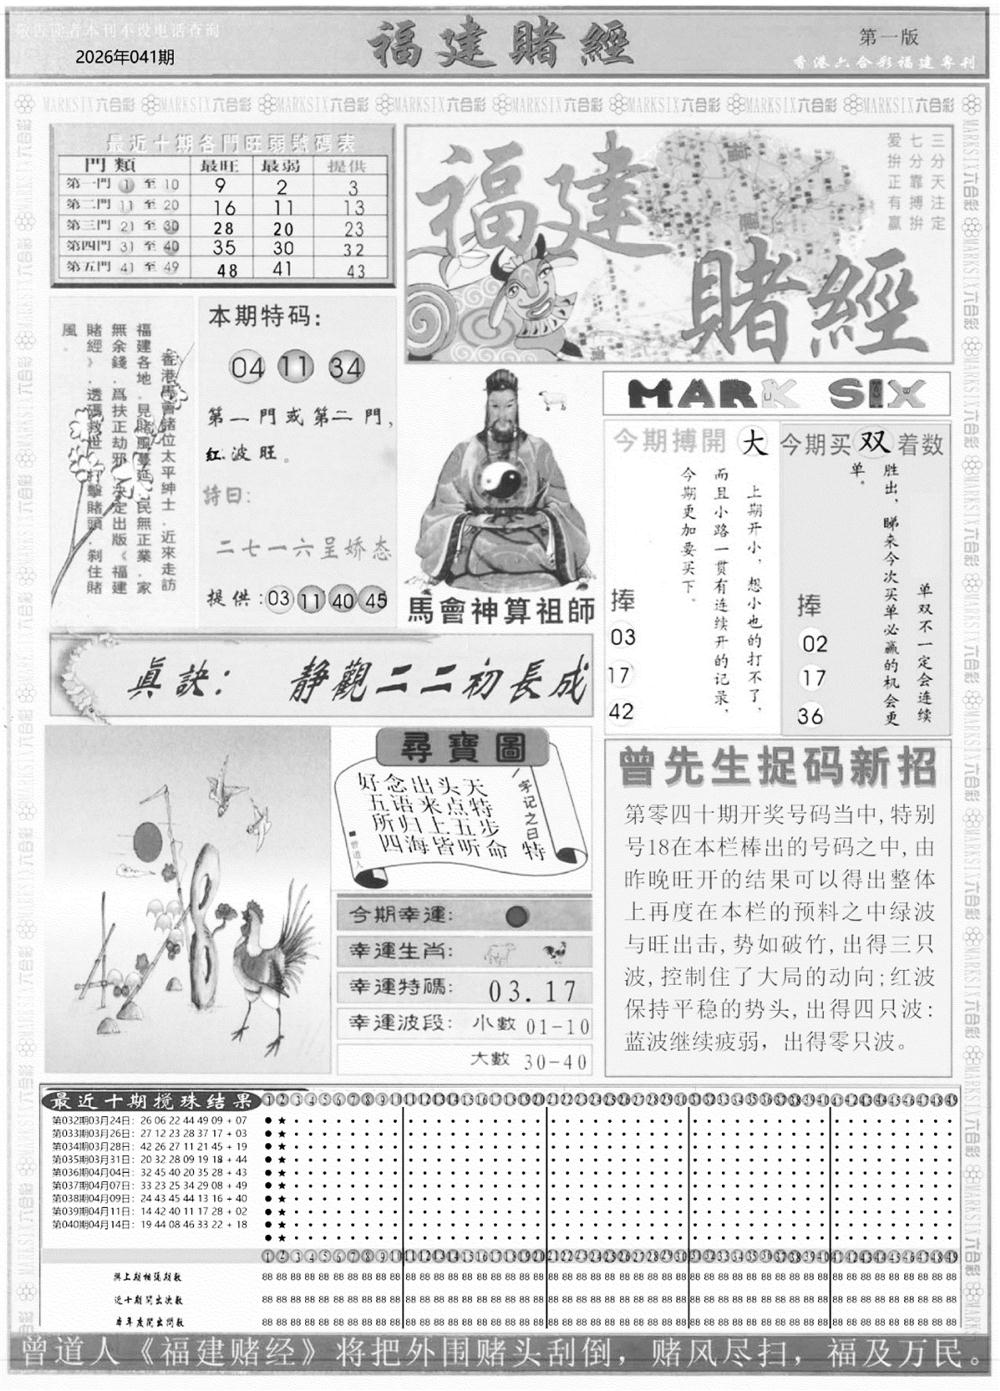 敬告读者本刊不设电话查询
2026年041期
福建赌經
第一版
香港六合彩福建專刊
最近十期各門旺弱號碼表
門類 最旺 最弱 提供
第一門 1 至 10 9 2 3
第二門 11 至 20 16 11 13
第三門 21 至 30 28 20 23
第四門 31 至 40 35 30 32
第五門 41 至 49 48 41 43
福建
賭經
三分天注定
七分靠搏拚
爱拚正有贏
香港馬會諸位太平紳士．近來走訪
福建各地．見賭風蔓延．民無正業．家
無余錢．爲扶正劫邪．決定出版《福建
賭經》．透碼救世．打擊賭頭．刹住賭
風．
本期特码：
04 11 34
第一門或第二門，
红波旺。
詩曰：
二七一六呈娇态
提供：03 11 40 45
馬會神算祖師
MARK SIX
今期搏開 大
上期开小，想小也的打不了，
而且小路一贯有连续开的记录，
今期更加要买下。
捧
03
17
42
今期买 双 着数
单双不一定会连续
胜出，睇来今次买单必赢的机会更
单。
捧
02
17
36
真訣： 静觀二二初長成
尋寶圖
一字记之曰特
好念出头天
五语来点特
所归上五步
四海皆听命
■曾道人
今期幸運：
幸運生肖：
幸運特碼： 03.17
幸運波段： 小數 01-10
大數 30-40
曾先生捉码新招
第零四十期开奖号码当中,特别
号18在本栏棒出的号码之中,由
昨晚旺开的结果可以得出整体
上再度在本栏的预料之中绿波
与旺出击,势如破竹,出得三只
波,控制住了大局的动向;红波
保持平稳的势头,出得四只波:
蓝波继续疲弱，出得零只波。
最近十期搅珠结果
第032期03月24日：26 06 22 44 49 09 + 07
第033期03月26日：27 12 23 28 37 17 + 03
第034期03月28日：42 26 27 11 21 45 + 19
第035期03月31日：20 32 28 09 19 18 + 44
第036期04月04日：32 45 40 20 35 28 + 43
第037期04月07日：33 23 25 34 29 08 + 49
第038期04月09日：24 43 45 44 13 16 + 40
第039期04月11日：14 42 40 11 17 28 + 02
第040期04月14日：19 44 08 46 33 22 + 18
與上期相隔期數
近十期開出次數
本年度開出期數
曾道人《福建赌经》将把外围赌头刮倒，赌风尽扫，福及万民。